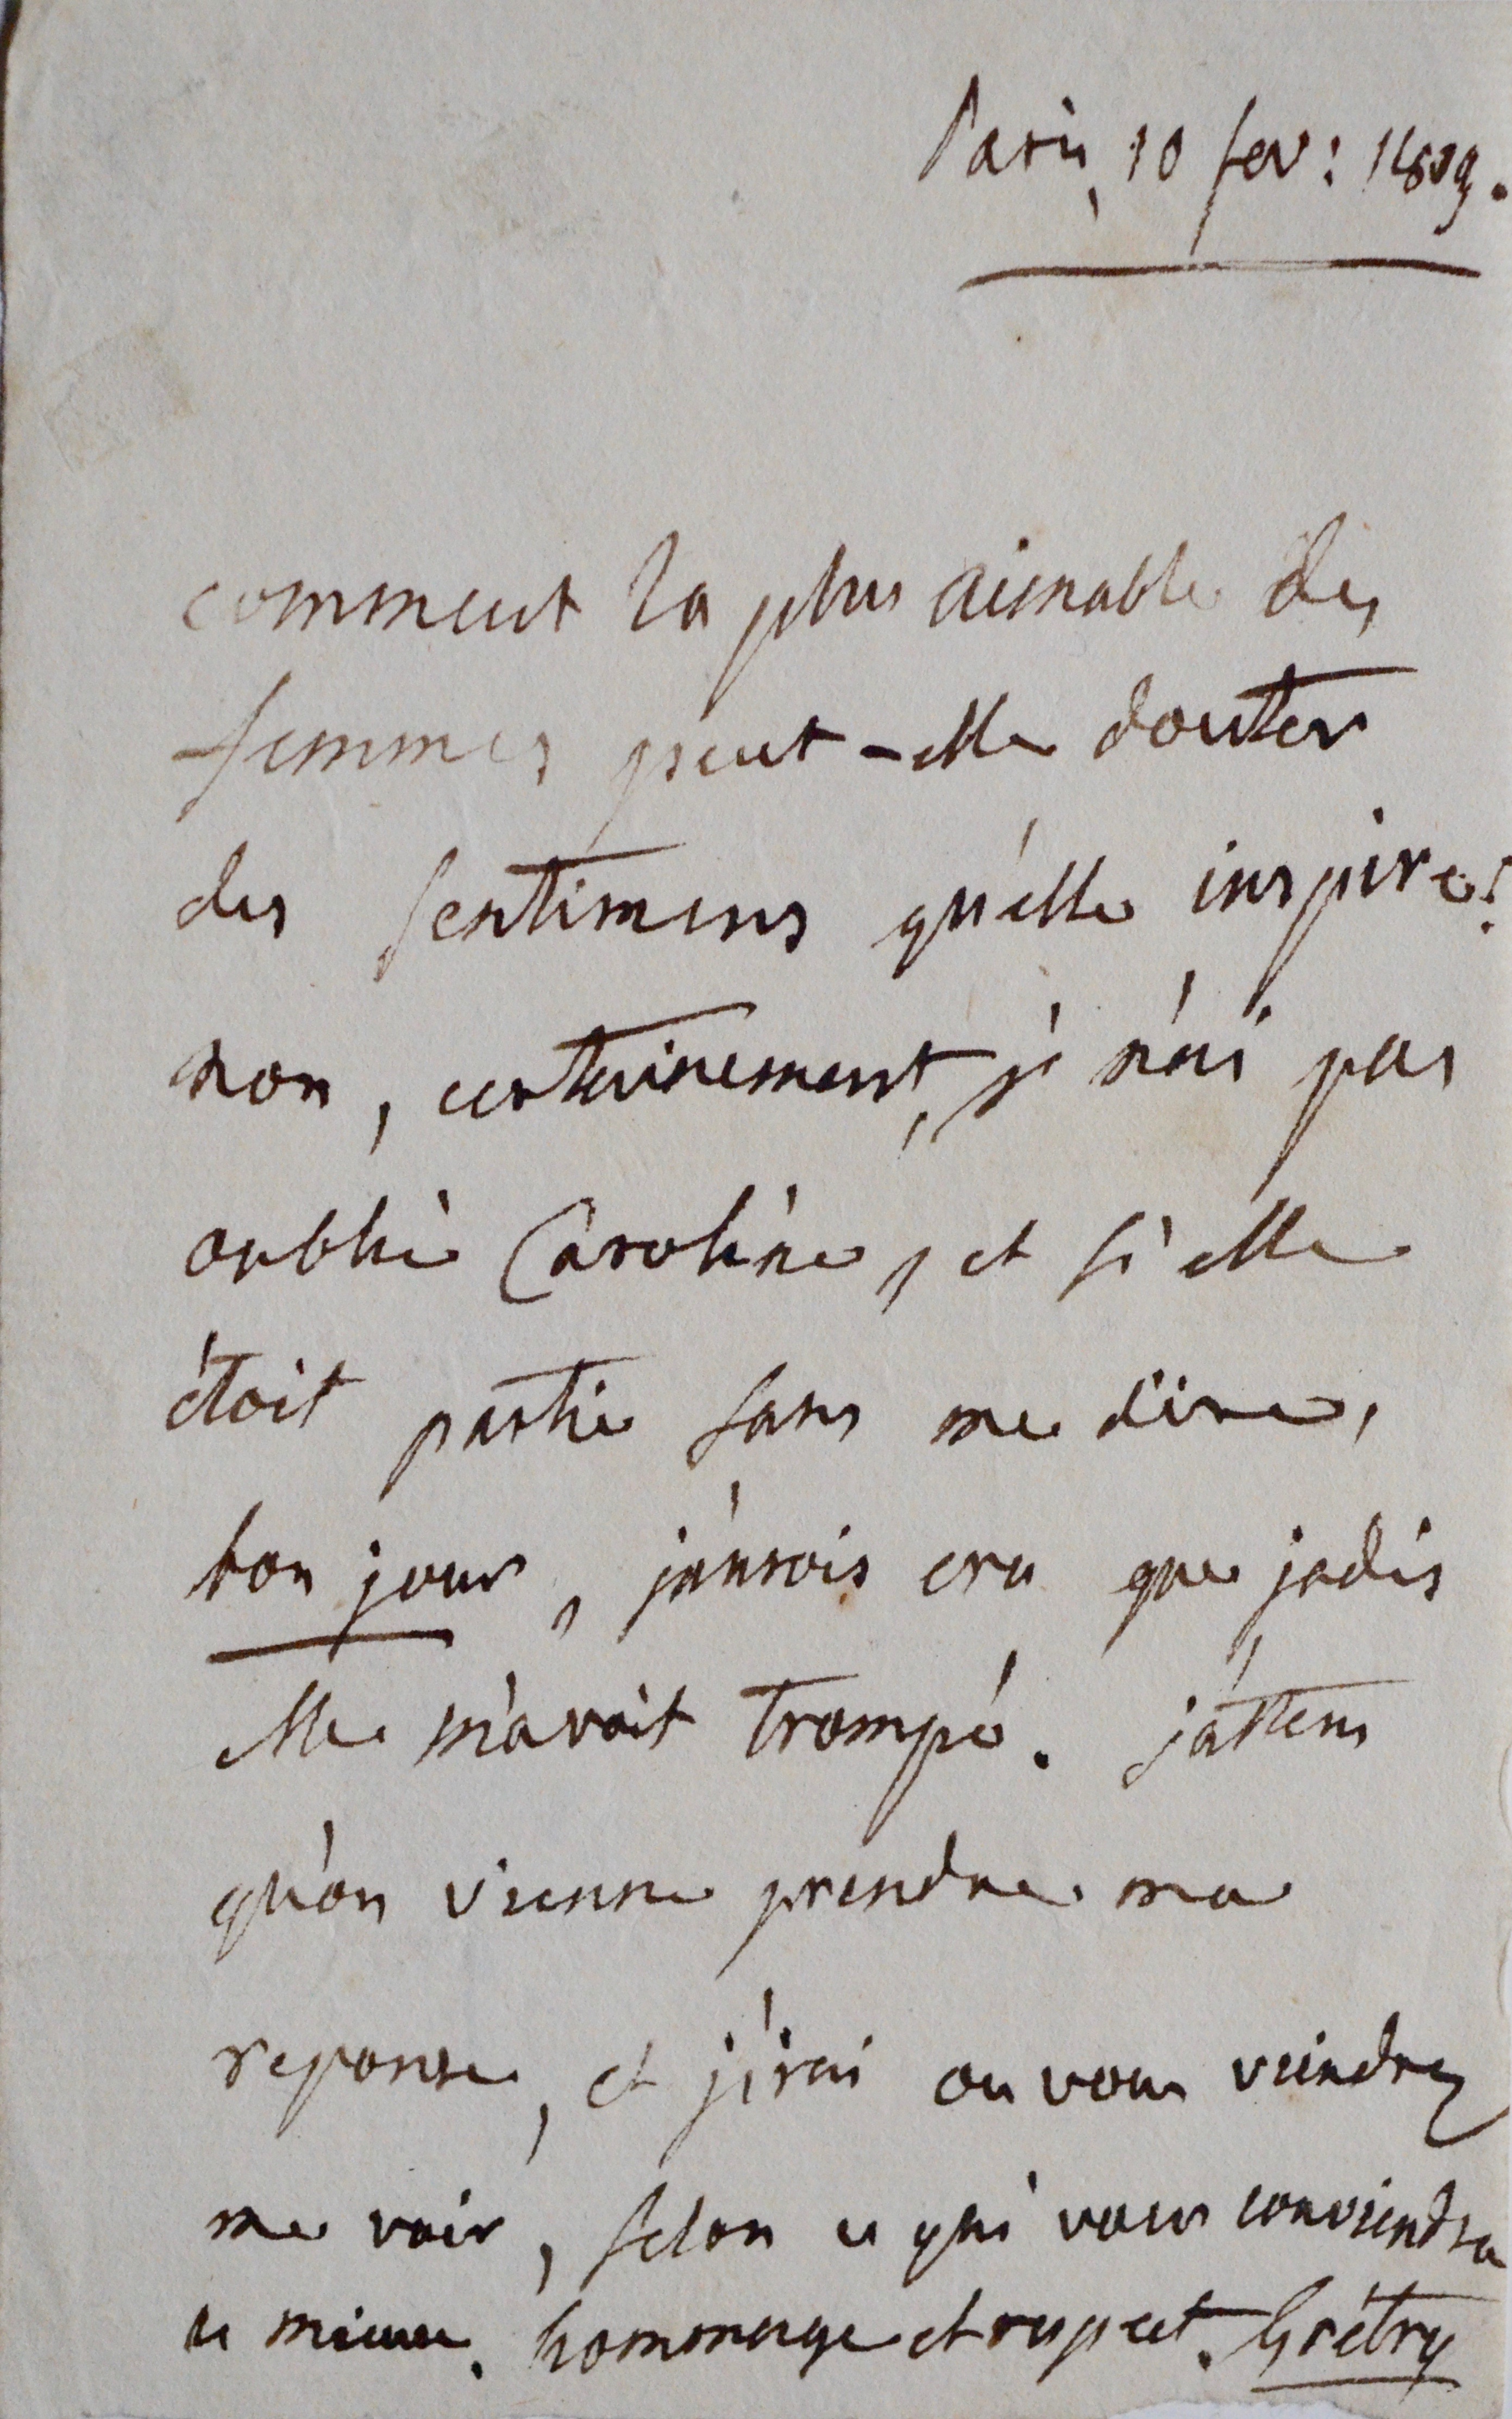 Paris, 10 fev: 1809.
comment la plus aimable des
femmes peut-elle douter
des sentimens qu'elle inspire?
non, certainement, je n'ai pas
oublié Caroline, et si elle
étoit partie sans me dire,
bon jour, j'aurois cru que jadis
elle m'avoit trompé. j'attens
qu'on vienne prendre ma
reponse, et j'irai ou vous viendrez
me voir, selon ce qui vous conviendra
le mieux. hommage et respect. Grétry